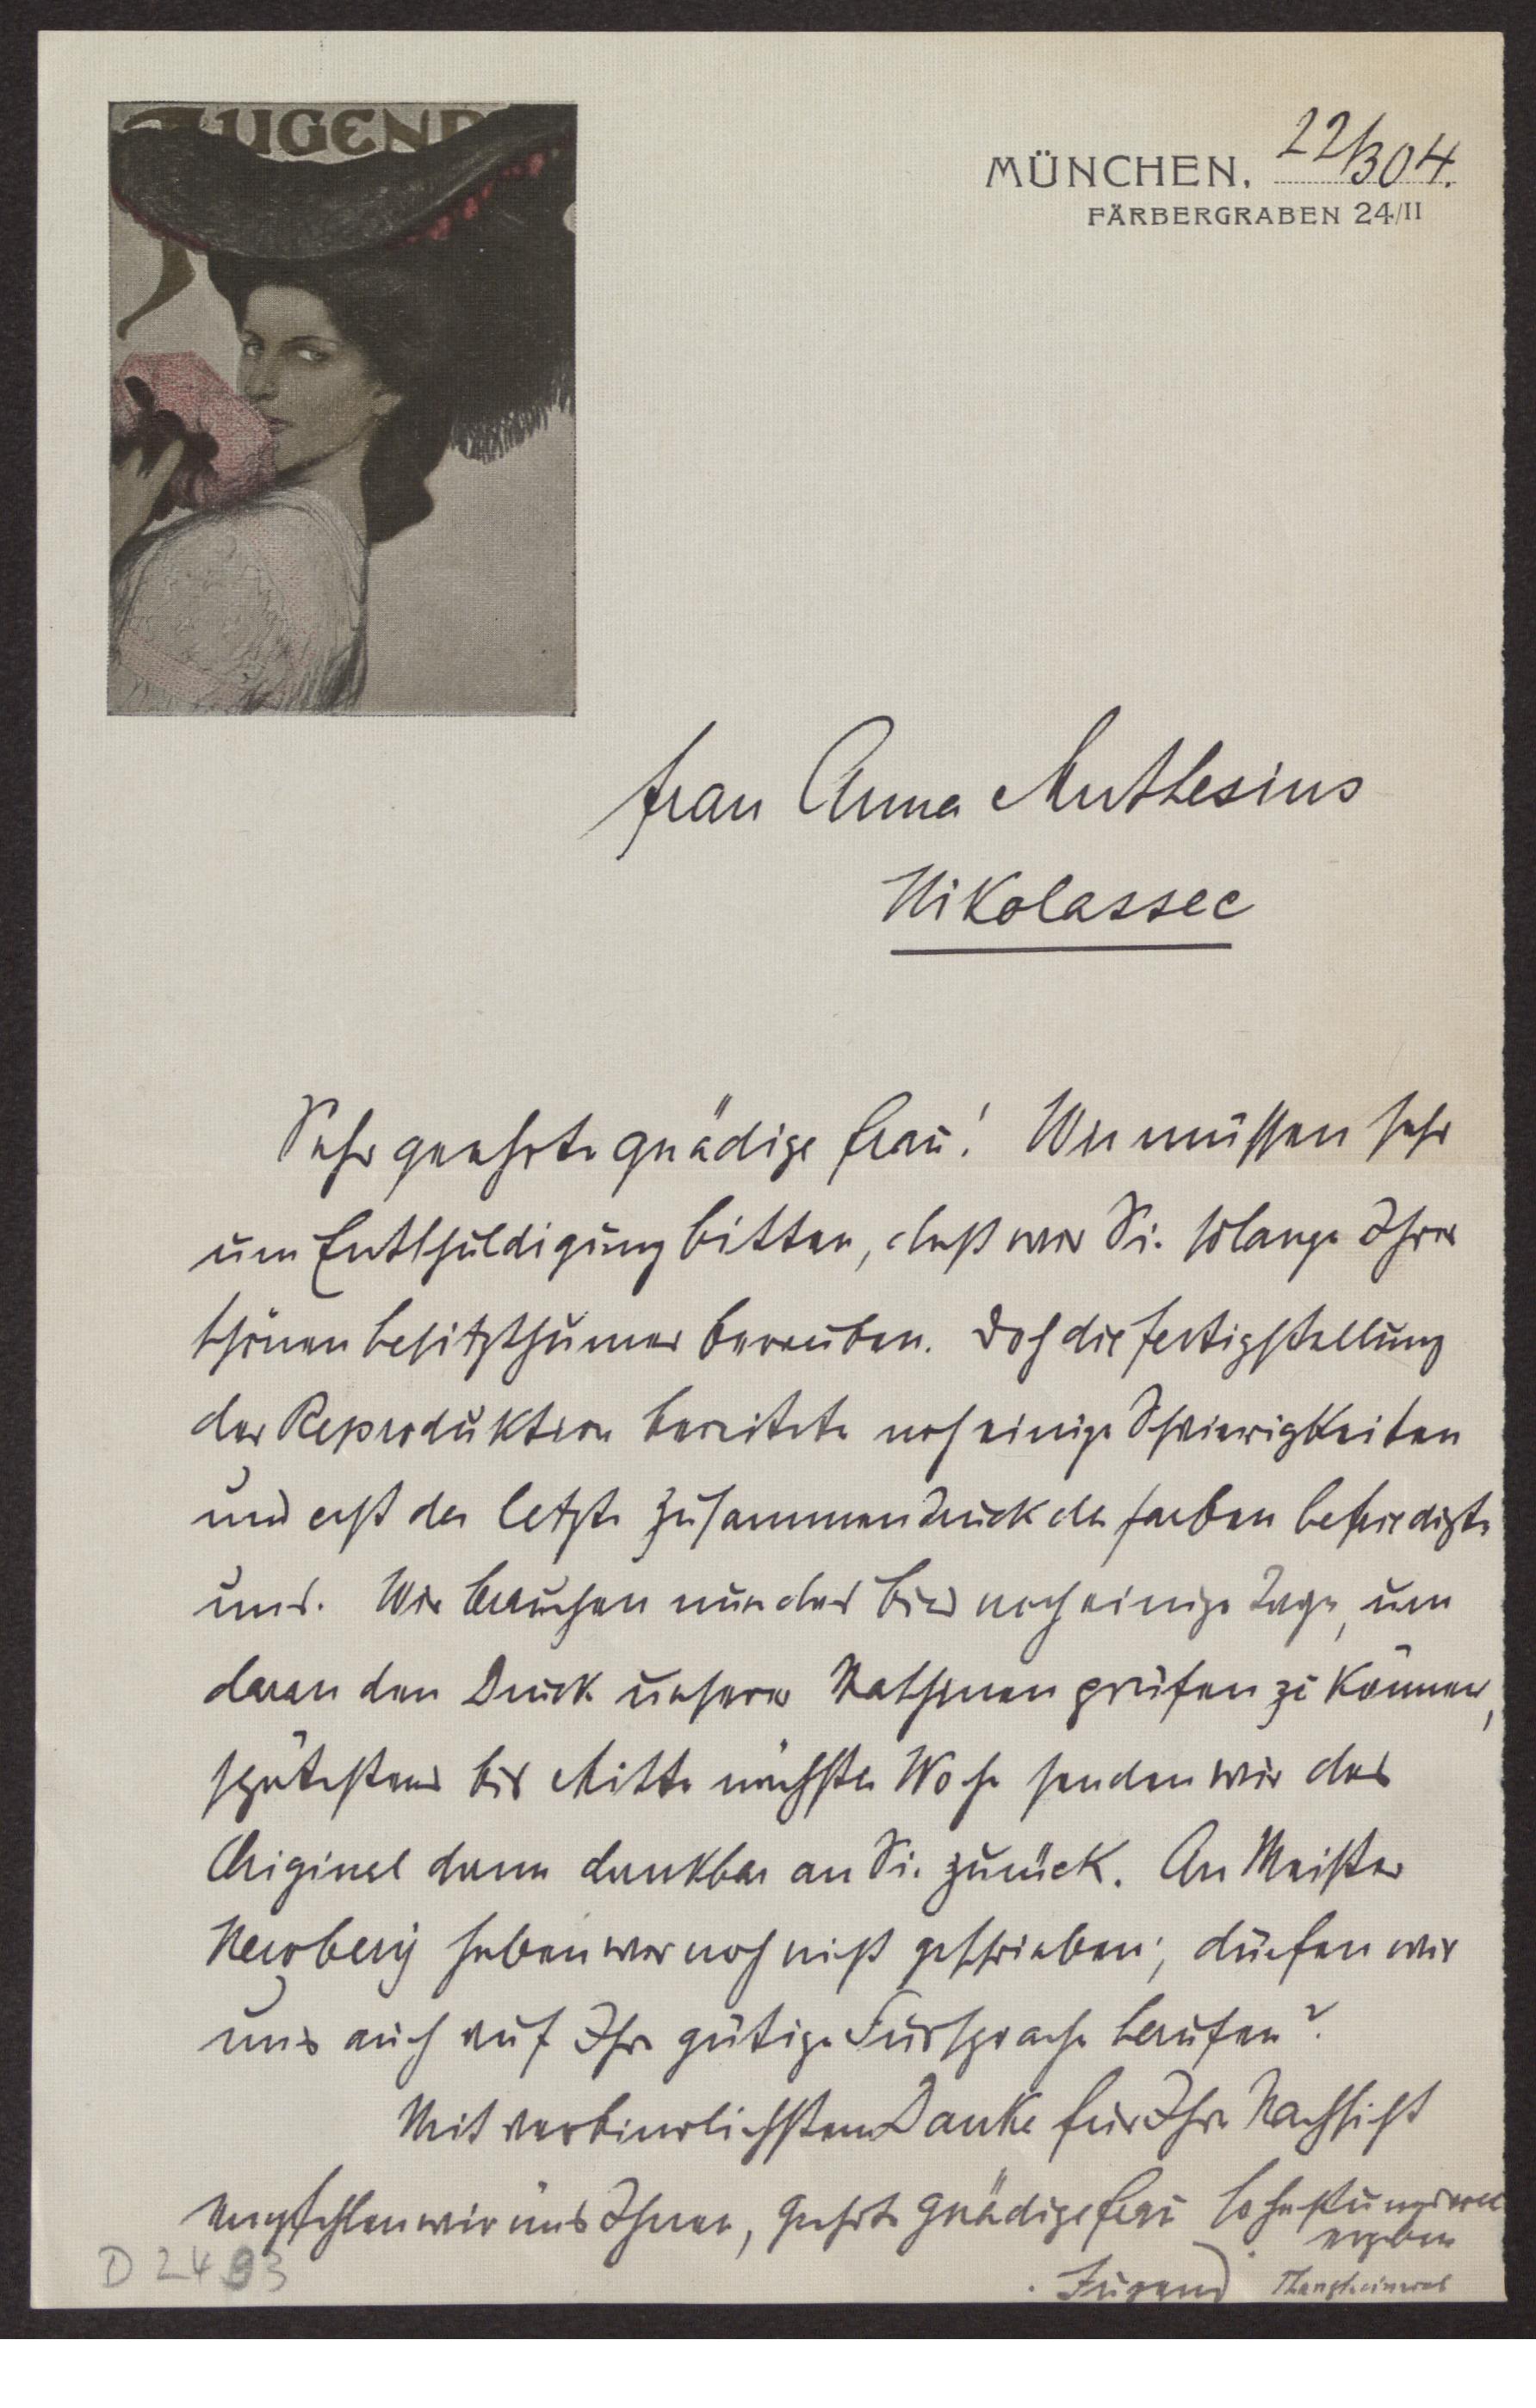 JUGEND
MÜNCHEN, 22/3 04.
FÄRBERGRABEN 24/II
Frau Anna Muthesius
Nikolassee
Sehr geehrte gnädige Frau! Wir müssen sehr
um Entschuldigung bitten, daß wir Sie solange Ihres
schönen Besitzthumes berauben. Doch die Fertigstellung
der Reproduktion bereitete noch einige Schwierigkeiten
und erst der letzte Zusammendruck der Farben befriedigte
uns. Wir brauchen nun das Bild noch einige Tage, um
daran den Druck unserer Maschinen prüfen zu können,
spätestens bis Mitte nächster Woche senden wir das
Original dann dankbar an Sie zurück. An Meister
Newbery haben wir noch nicht geschrieben; dürfen wir
uns auch auf Ihre gütige Fürsprache berufen?
Mit verbindlichstem Danke für Ihre Nachsicht
empfehlen wir uns Ihnen, geehrte gnädige Frau hochachtungsvoll
ergeben
Jugend
D 2493